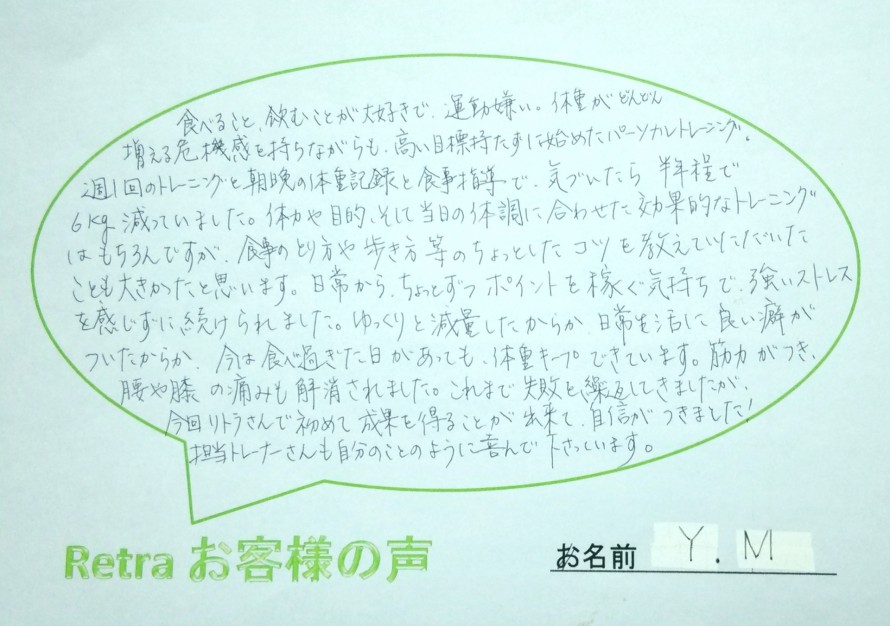 食べること、飲むことが大好きで、運動嫌い。体重がどんどん
増える危機感を持ちながらも、高い目標持たずに始めたパーソナルトレーニング。
週1回のトレーニングと朝晩の体重記録と食事指導で、気づいたら半年程で
6kg減っていました。体力や目的、そして当日の体調に合わせた効果的なトレーニング
はもちろんですが、食事のとり方や歩き方等のちょっとしたコツを教えていただいた
ことも大きかったと思います。日常から、ちょっとずつポイントを稼ぐ気持ちで、強いストレス
を感じずに続けられました。ゆっくりと減量したからか、日常生活に良い癖が
ついたからか、今は食べ過ぎた日があっても、体重キープできています。筋力がつき、
腰や膝の痛みも解消されました。これまで失敗を繰返してきましたが、
今回リトラさんで初めて成果を得ることが出来て、自信がつきました!
担当トレーナーさんも自分のことのように喜んで下さっています。
Retra お客様の声
お名前 Y.M